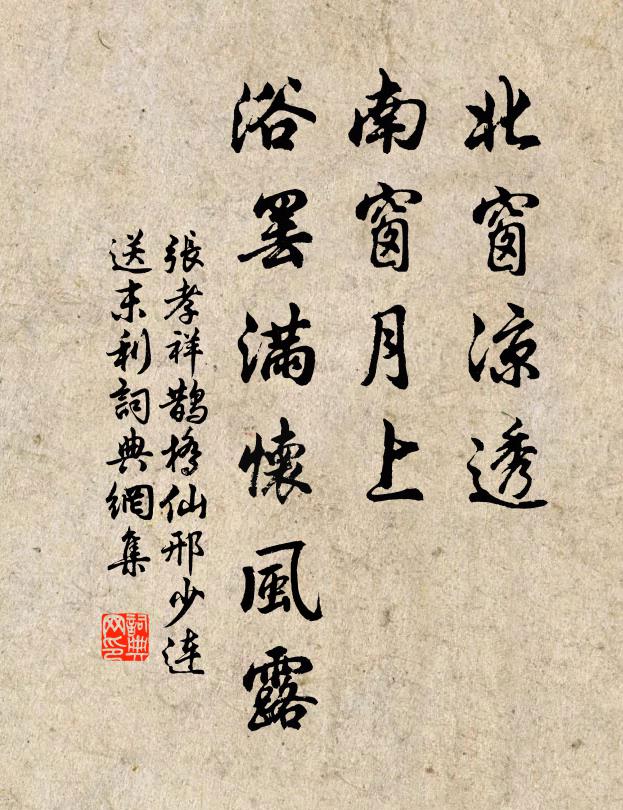 北窗涼透
南窗月上
浴罷滿懷風露
張孝祥鵲橋仙邢少連
送末利詞典網集
詞典网印